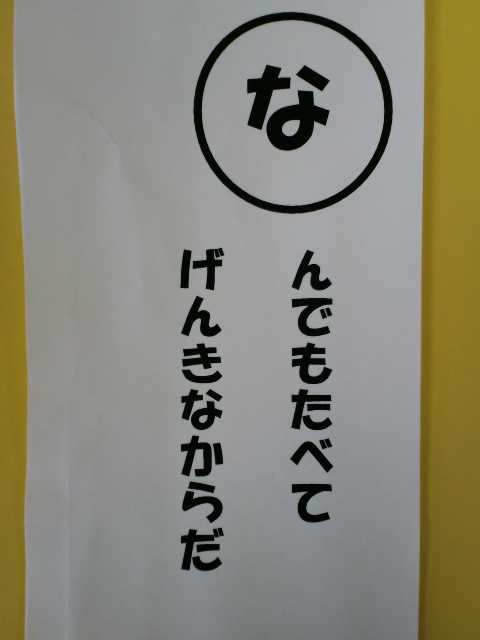 な
んでもたべて
げんきなからだ